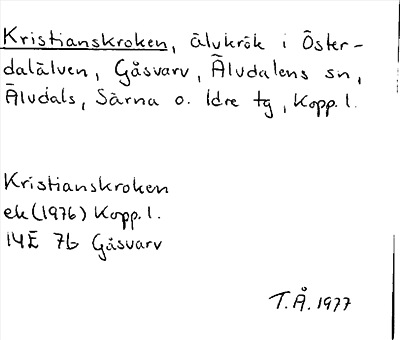 Kristianskroken, älvkrök i Öster-
dalälven, Gåsvarv, Älvdalens sn,
Älvdals, Särna o. Idre tg, Kopp. l.
Kristianskroken
ek (1976) Kopp. l.
14E 7b Gåsvarv
T.Å. 1977